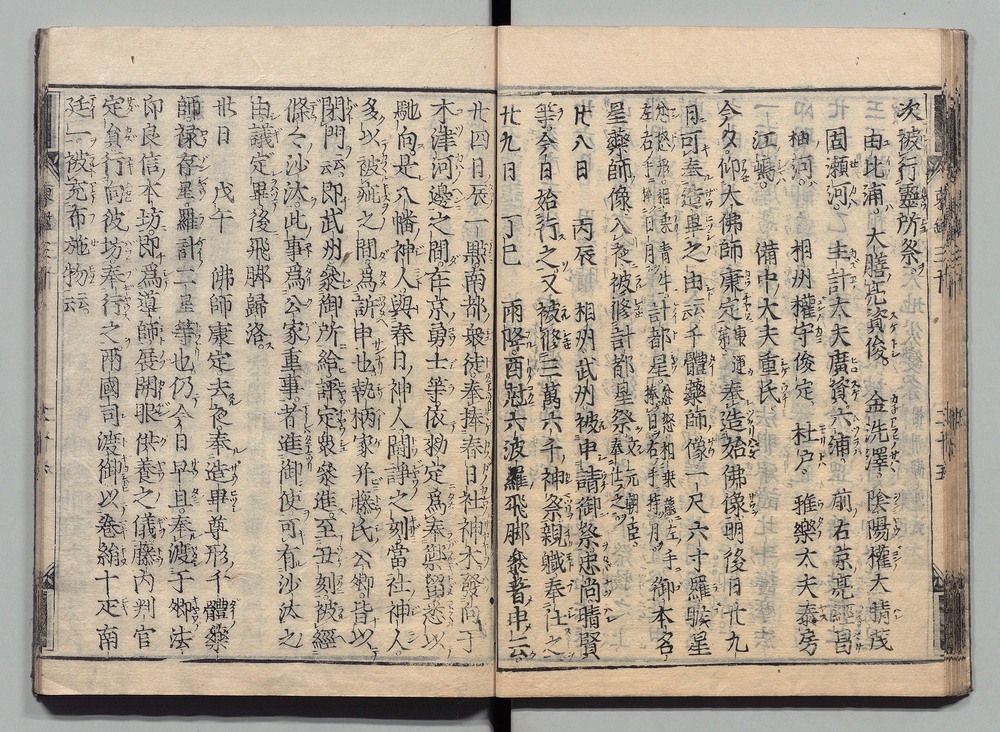 次被行靈所祭
由比浦。大膳亮資俊。 金洗澤。陰陽權大 晴茂
固瀬河。主計大夫廣資六浦。前右京亮經昌
柚河。 相州權守俊定 杜戸。 雅樂大夫泰房
江嶋。 備中大夫重氏
今夕仰大佛師康定康運弟奉造始佛像明後日廿九
日可奉造畢之由云云千體藥師像一尺六寸羅睺星
計都星 御本名
星藥師像入夜被修計都星祭奉仕之
廿八日 丙辰 相州武州被申請御祭忠尚晴賢
等今日始行之又被修三萬六千神祭親職奉仕之
廿九日 丁巳 雨降酉尅六波羅飛脚參着申云
廿四日辰一點南都衆徒奉捧春日社神木發向于
木津河邊之間在京勇士等依勅定爲奉禦留悉以
馳向是八幡神人與春日神人鬪諍之刻當社神人
多以被疵之間爲訴申也執柄家并藤氏公卿皆以
閉門云云即武州參御所給評定衆參進至丑刻被經
條々沙汰此事爲公家重事者進御使可有沙汰之
由議定畢後飛脚歸洛
卅日 戊午 佛師康定去夜奉造畢尊形千體藥
師祿存星羅計二星等也仍今日早旦奉渡于卿法
印良信本坊即爲導師展開眼供養之儀藤内判官
定員行向彼坊奉行之兩國司渡御以卷絹十疋南
廷一被充布施物云云